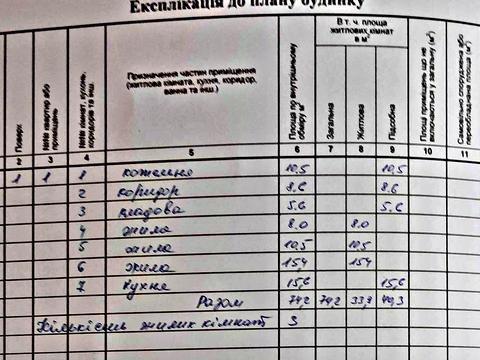 Експлікація до плану будинку
Поверх
№№ квартир або приміщень
№№ кімнат, кухонь, коридорів та інш.
Призначення частин приміщення
(житлова кімната, кухня, коридор,
ванна та інш.)
Площа по внутрішньому обміру м²
В т. ч. площа
житлових кімнат
в м²
Загальна
Житлова
Підсобна
Площа приміщень що не включаються у загальну (м²)
Самовільно споруджена або переобладнана площа (м²)
2 3 4 5 6 7 8 9 10 11
1 1 1 10,5 10,5
2 коридор 8.6 8.6
3 кладова 5.6 5.6
4 жила 8.0 8.0
5 жила 10,5 10,5
6 жила 15,4 15,4
7 кухне 15,6 15,6
Разом 74,2 74,2 33,9 40,3
Кількість жилих кімнат 3